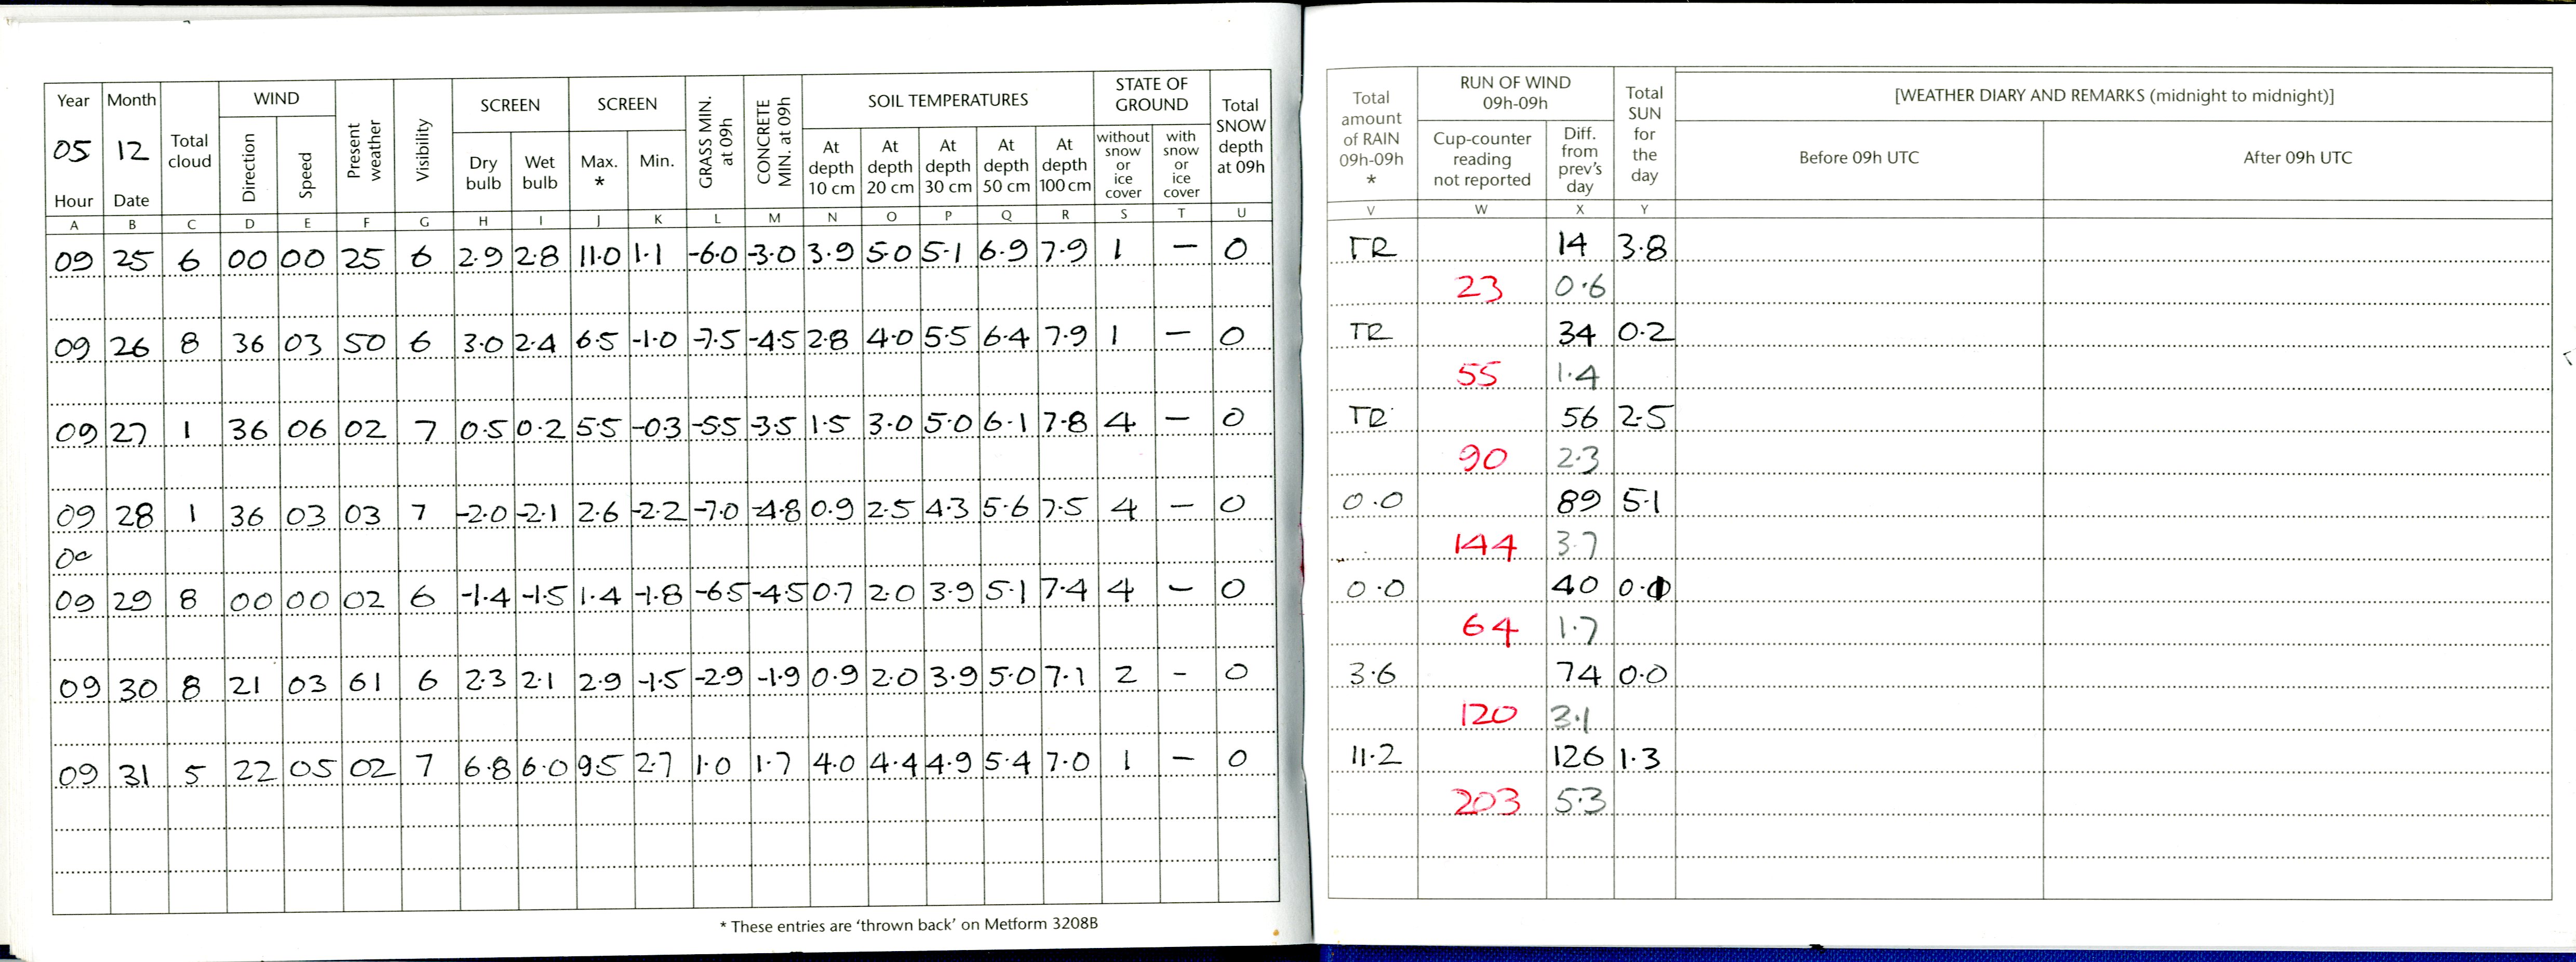 Year Month WIND SCREEN SCREEN SOIL TEMPERATURES STATE OF GROUND
05 12 Total cloud Direction Speed Present weather Visibility Dry bulb Wet bulb Max. * Min. GRASS MIN. at 09h CONCRETE MIN. at 09h At depth 10 cm At depth 20 cm At depth 30 cm At depth 50 cm At depth 100 cm without snow or ice cover with snow or ice cover Total SNOW depth at 09h
Hour Date
A B C D E F G H I J K L M N O P Q R S T U
09 25 6 00 00 25 6 2.9 2.8 11.0 1.1 -6.0 -3.0 3.9 5.0 5.1 6.9 7.9 1 — 0
09 26 8 36 03 50 6 3.0 2.4 6.5 -1.0 -7.5 -4.5 2.8 4.0 5.5 6.4 7.9 1 — 0
09 27 1 36 06 02 7 0.5 0.2 5.5 -0.3 -5.5 -3.5 1.5 3.0 5.0 6.1 7.8 4 — 0
09 28 1 36 03 03 7 -2.0 -2.1 2.6 -2.2 -7.0 -4.8 0.9 2.5 4.3 5.6 7.5 4 — 0
09 29 8 00 00 02 6 -1.4 -1.5 1.4 -1.8 -6.5 -4.5 0.7 2.0 3.9 5.1 7.4 4 — 0
09 30 8 21 03 61 6 2.3 2.1 2.9 -1.5 -2.9 -1.9 0.9 2.0 3.9 5.0 7.1 2 - 0
09 31 5 22 05 02 7 6.8 6.0 9.5 2.7 1.0 1.7 4.0 4.4 4.9 5.4 7.0 1 — 0
* These entries are ‘thrown back’ on Metform 3208B
Total amount of RAIN 09h-09h * RUN OF WIND 09h-09h Total SUN for the day [WEATHER DIARY AND REMARKS (midnight to midnight)]
Cup-counter reading not reported Diff. from prev's day Before 09h UTC After 09h UTC
V W X Y
TR 14 3.8
23 0.6
TR 34 0.2
55 1.4
TR 56 2.5
90 2.3
0.0 89 5.1
144 3.7
0.0 40 0.0
64 1.7
3.6 74 0.0
120 3.1
11.2 126 1.3
203 5.3